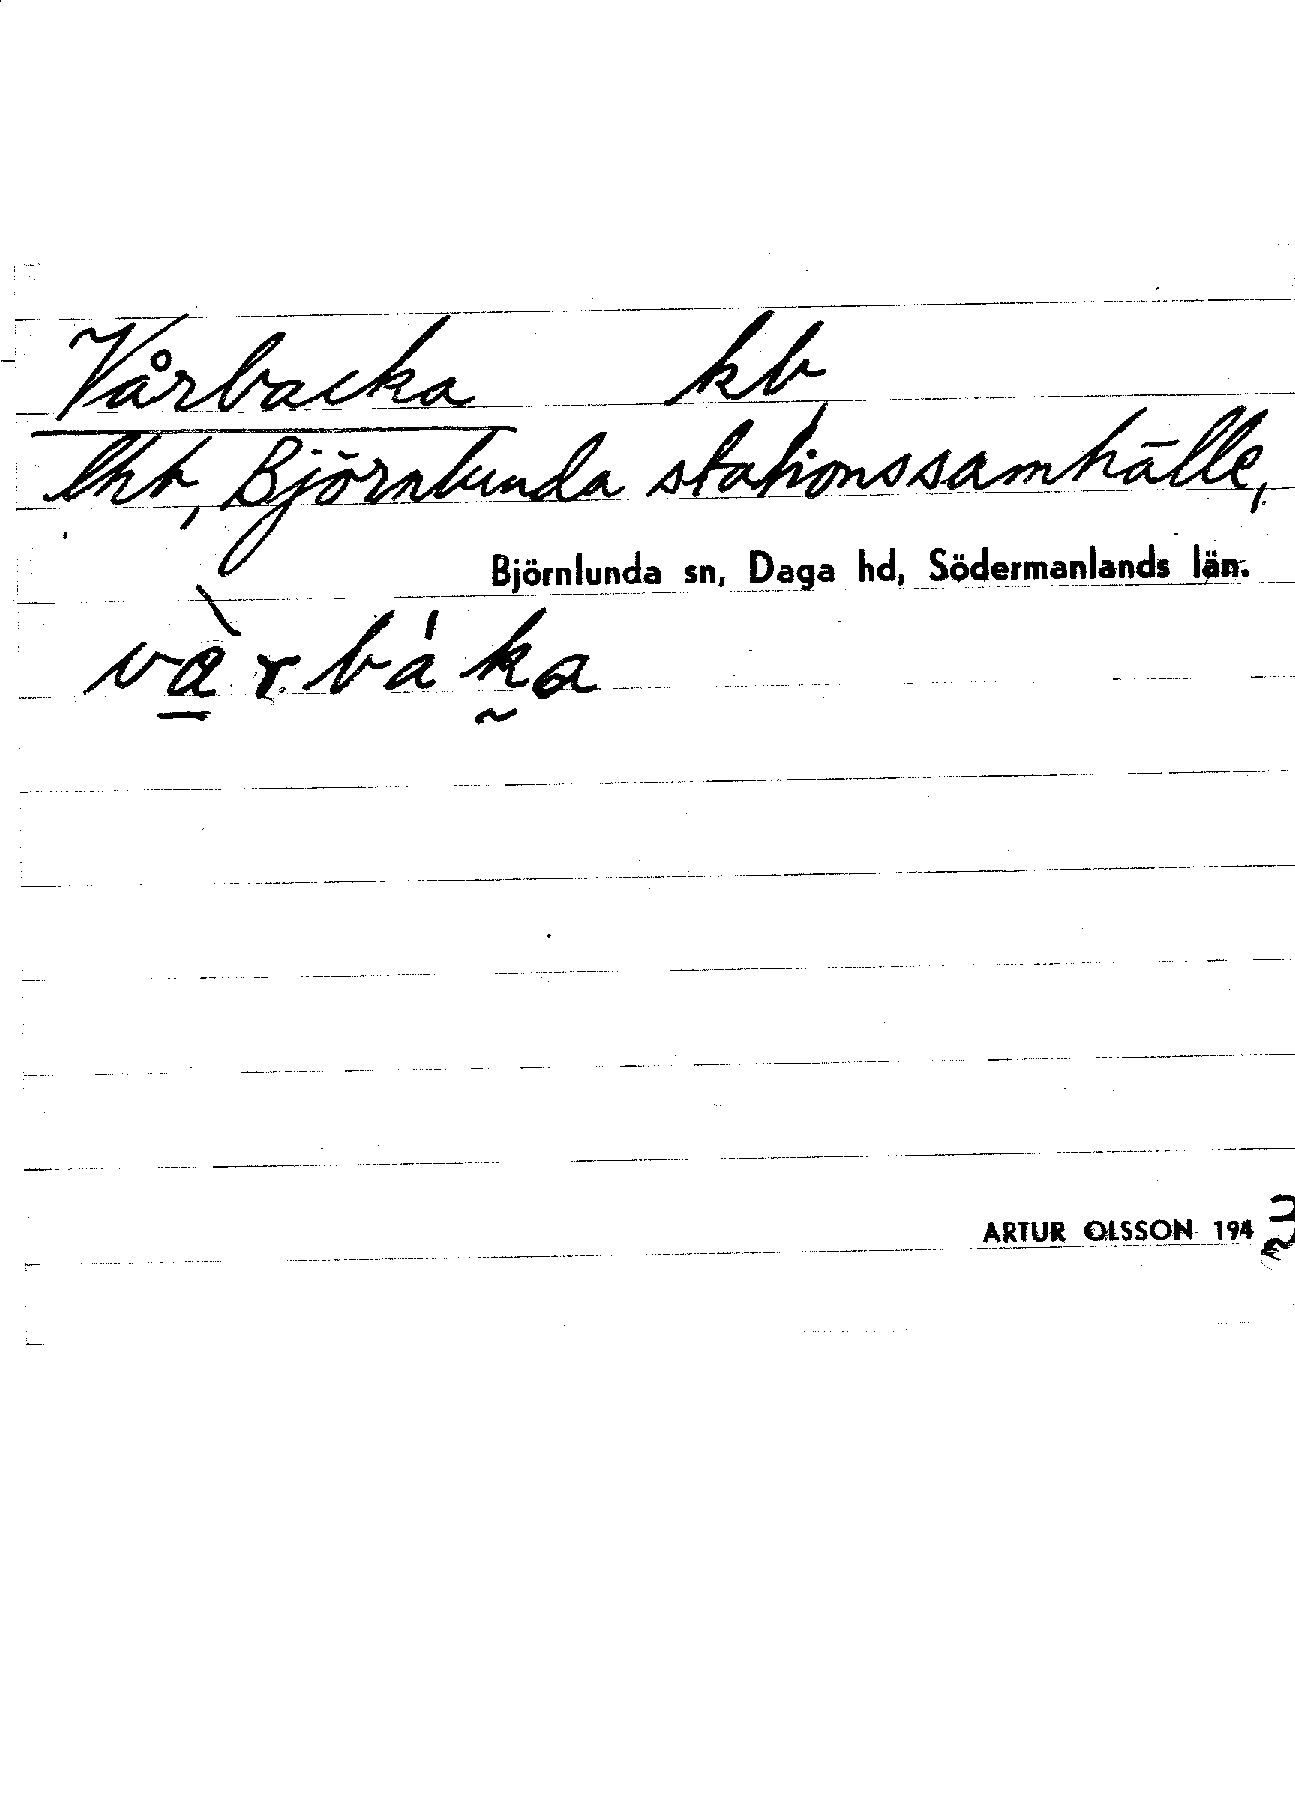 Vårbacka kb
lht, Björnlunda stationssamhälle,
Björnlunda sn, Daga hd, Södermanlands län.
vàrbáka
ARTUR OLSSON 1943